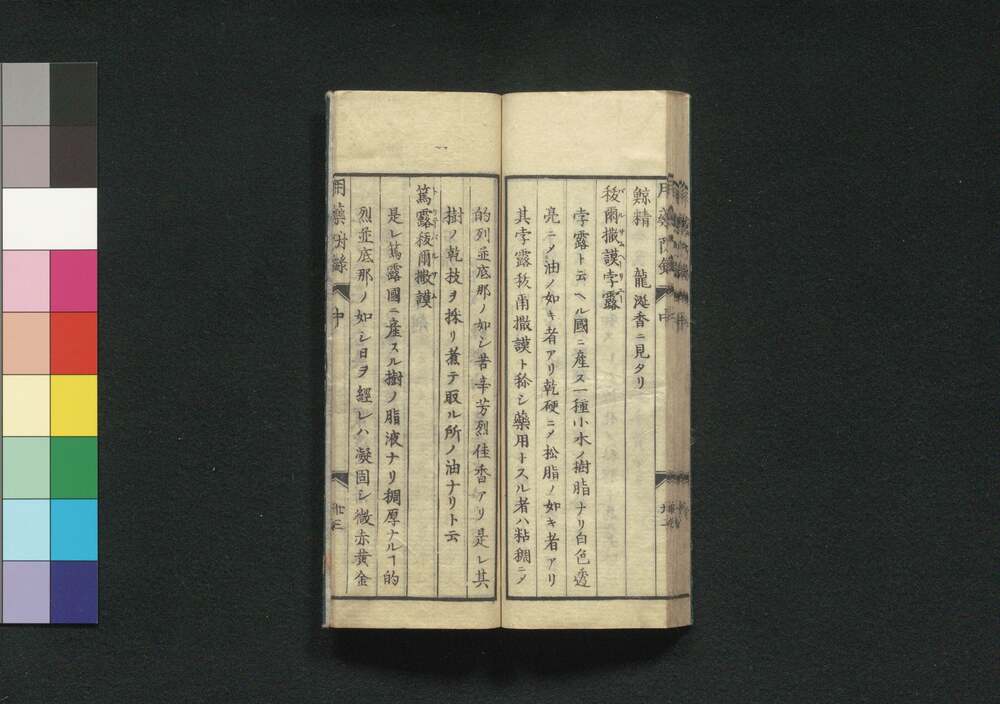 鯨精　龍涎香ニ見タリ
抜爾撒謨孛露
孛露ト云ヘル國ニ産ス一種小木ノ樹脂ナリ白色透
亮ニメ油ノ如キ者アリ乾硬ニメ松脂ノ如キ者アリ
其孛露抜爾撒謨ト称シ藥用トスル者ハ粘稠ニメ
的列並底那ノ如シ苦辛芳烈佳香アリ是レ其
樹ノ乾技ヲ採リ煮テ取ル所ノ油ナリト云
篤露抜爾撒謨
是レ篤露國ニ産スル樹ノ脂液ナリ稠厚ナルヿ的
烈並底那ノ如シ日ヲ經レハ凝固シ微赤黄金
用藥附錄　中　廿三